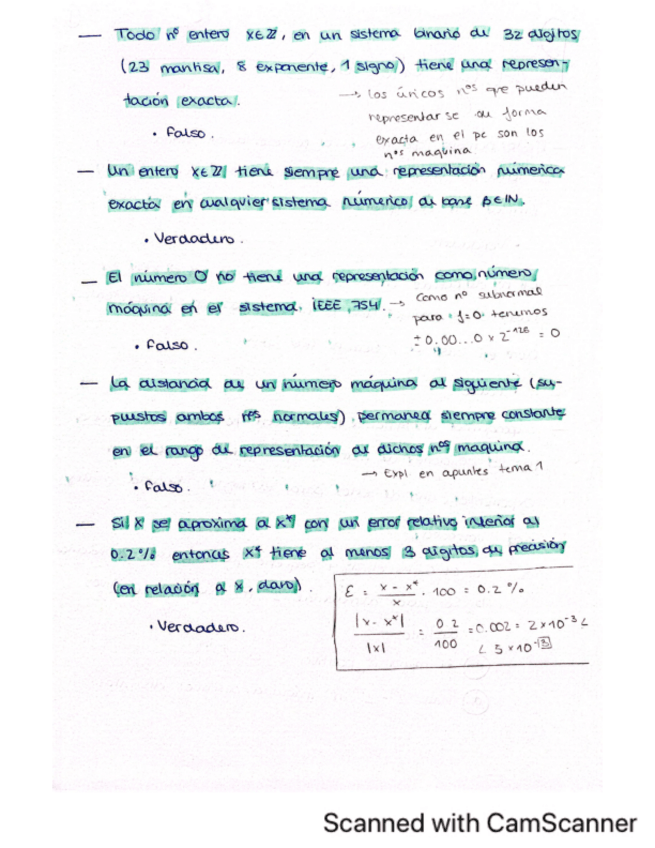 — Todo nº entero x∈ℤ, en un sistema binario de 32 dígitos
(23 mantisa, 8 exponente, 1 signo) tiene una represen-
tación exacta.
→ los únicos nos que pueden
representarse de forma
exacta en el pc son los
nos maquina
• Falso.
— Un entero x∈ℤ tiene siempre una representación númerica
exacta en cualquier sistema númerico de base β∈ℕ.
• Verdadero.
— El número 0 no tiene una representación como número
máquina en el sistema. iEEE 754.
→ Como nº subnormal
para f=0 tenemos
± 0.00...0 x 2^-126 = 0
• Falso.
— La distancia de un número máquina al siguiente (su-
puestos ambos nos normales) permanece siempre constante
en el rango de representación de dichos nos maquina.
→ Expl en apuntes tema 1
• Falso.
— Si x se aproxima a x* con un error relativo inferior al
0.2% entonces x* tiene al menos 3 dígitos de precisión
(en relación a x, claro).
ε = (x - x*)/x · 100 = 0.2 %
|x - x*|/|x| = 0.2/100 = 0.002 = 2x10^-3 <
< 5x10^-3
• Verdadero.
Scanned with CamScanner